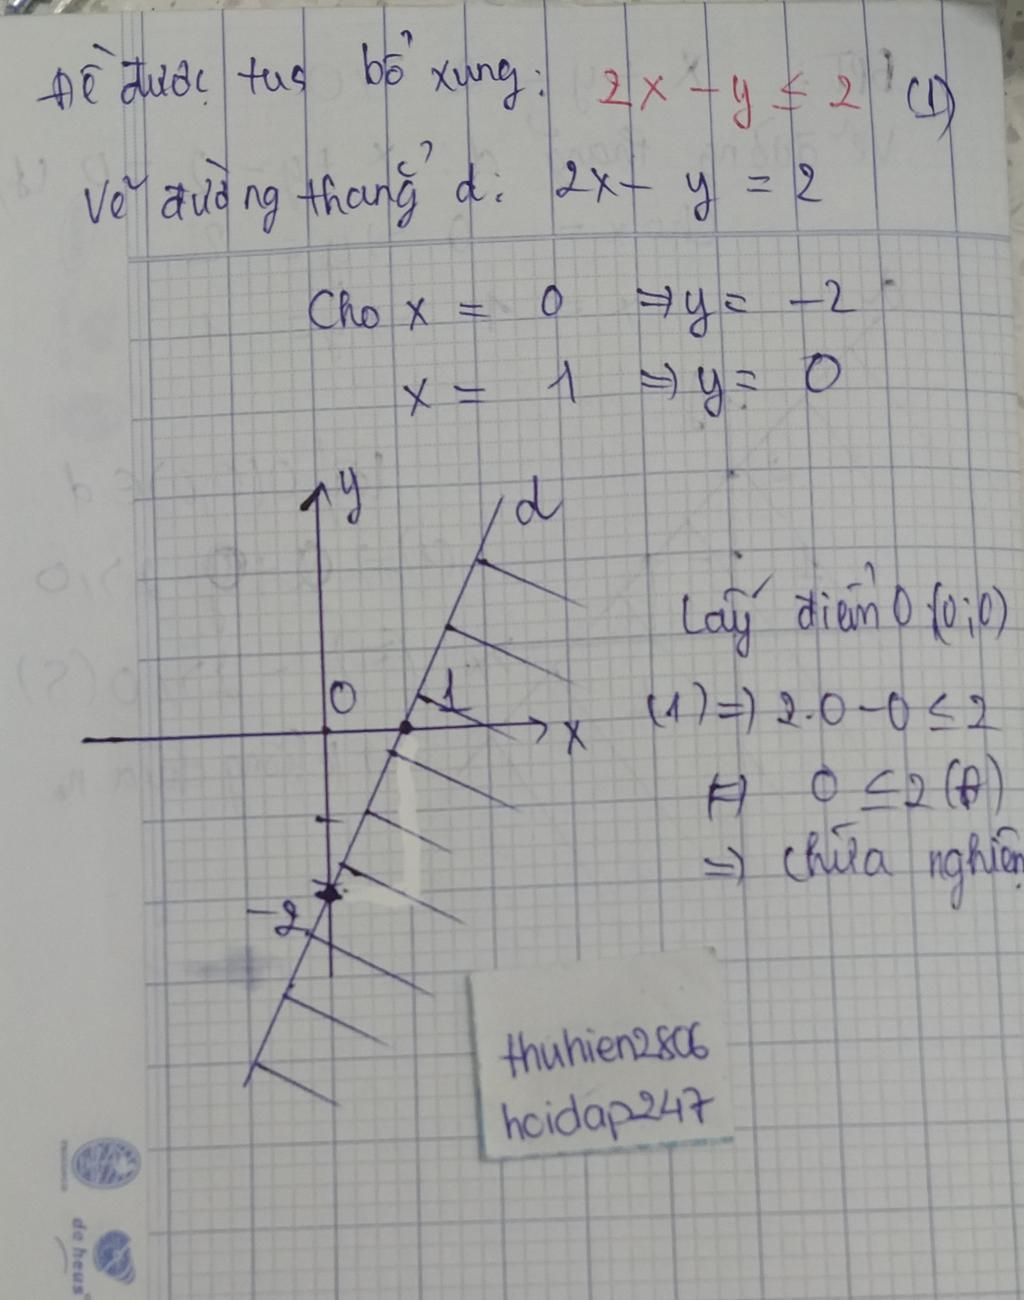 Đề được tus bổ xung: 2x - y ≤ 2 (1)
Vẽ đường thẳng d: 2x - y = 2
Cho x = 0 ⇒ y = -2
x = 1 ⇒ y = 0
y
d
Lấy điểm O (0;0)
0
1
x
(1) ⇒ 2.0 - 0 ≤ 2
⇔ 0 ≤ 2 (Đ)
⇒ chứa nghiệm
-2
thuhien2806
hoidap247
de heus